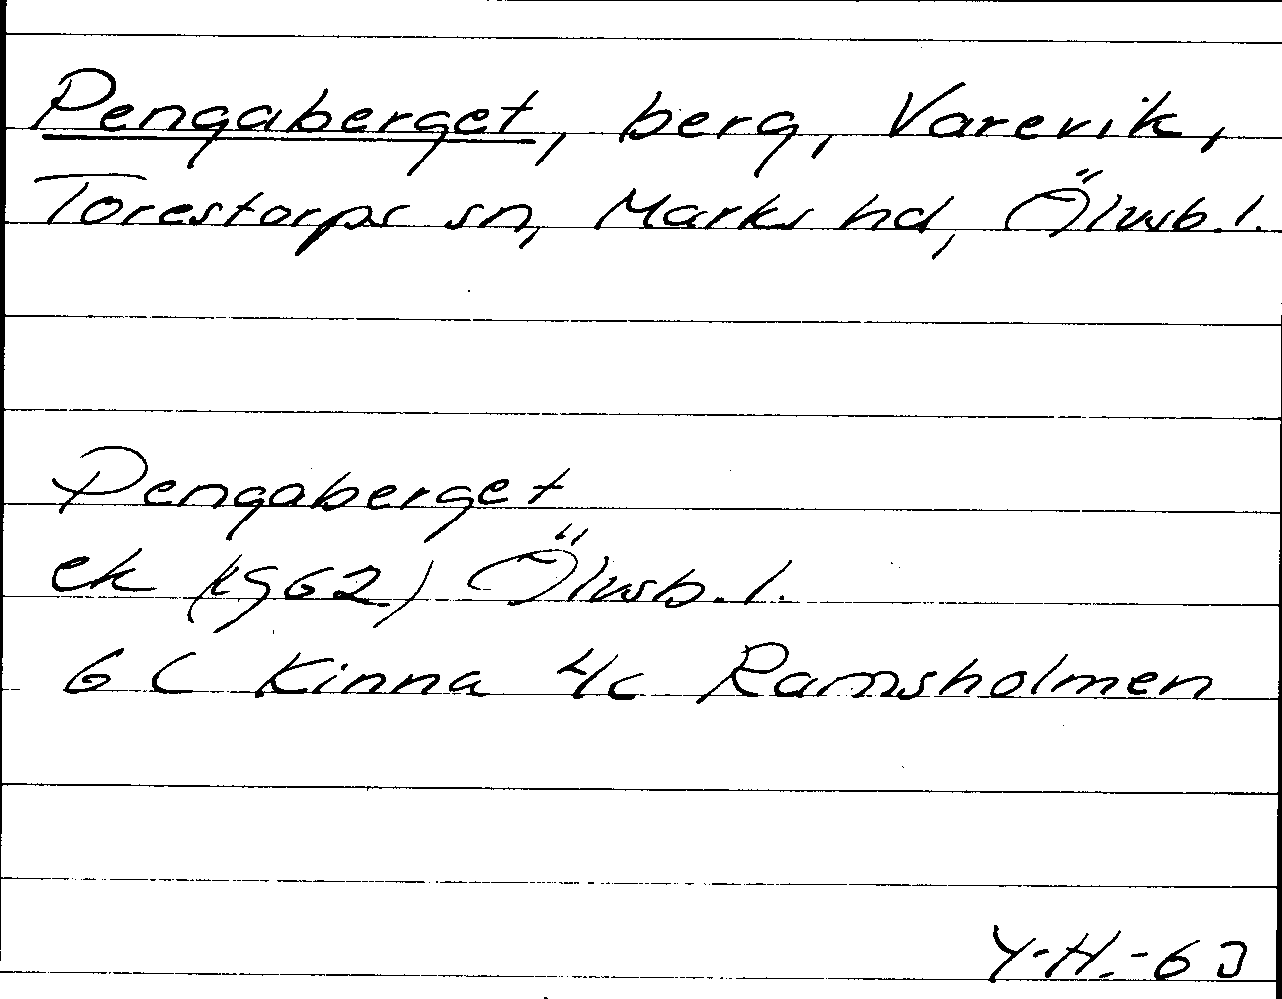 Pengaberget, berg, Varevik,
Torestorps sn, Marks hd, Älvsb. l.
Pengaberget
ek (1962) Älvsb. l.
6 C Kinna 4c Ramsholmen
Y-H.-63